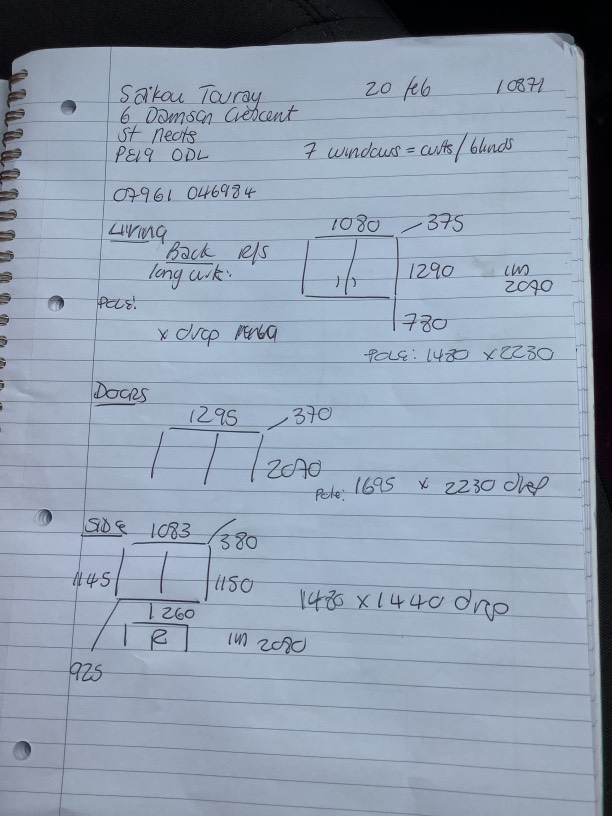 Saikou Touray 20 feb 10871
6 Damson Crescent
St Neots
PE19 0DL 7 windows = curts/blinds
07961 046984
LIVING 1080 375
Back R/S
long curt. 1290 1m 2070
POLE:
780
x drop
POLE: 1480 x 2230
DOORS
1295 370
2070
Pole: 1695 x 2230 drop
SIDE 1083 380
1145 1150
1480 x 1440 drop
1260
R 1m 2080
925